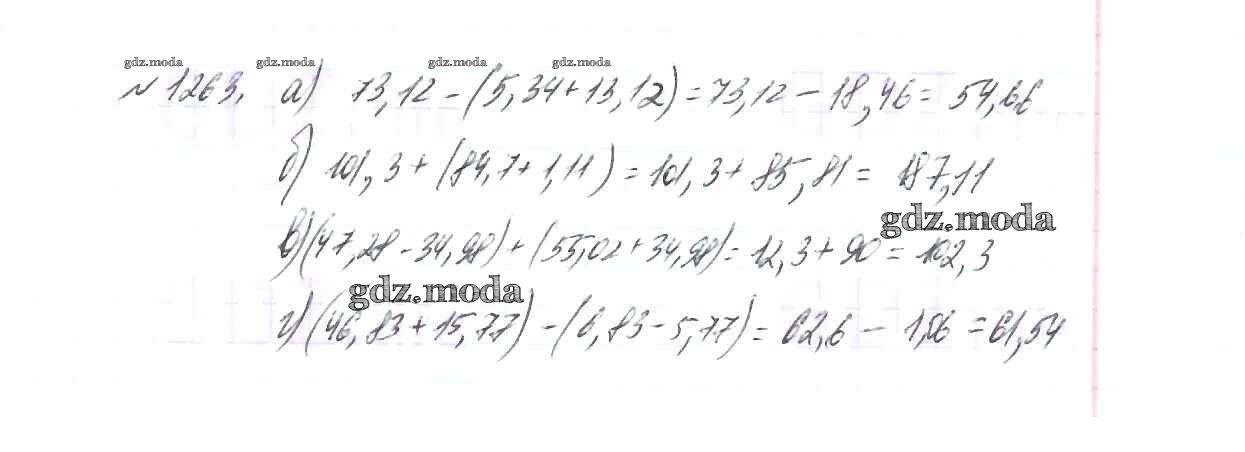 gdz.moda gdz.moda gdz.moda gdz.moda
№ 1263. а) 73,12 - (5,34 + 13,12) = 73,12 - 18,46 = 54,66
б) 101,3 + (84,7 + 1,11) = 101,3 + 85,81 = 187,11
gdz.moda
в) (47,28 - 34,98) + (55,02 + 34,98) = 12,3 + 90 = 102,3
gdz.moda
г) (46,83 + 15,77) - (6,83 - 5,77) = 62,6 - 1,06 = 61,54